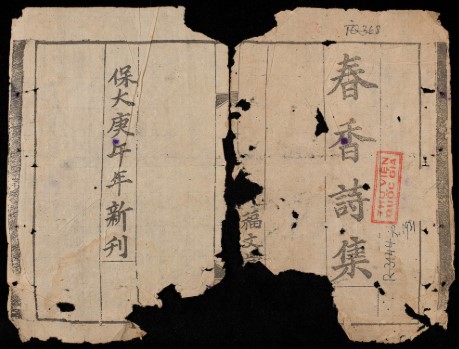 春香詩集
THƯ VIỆN
QUỐC GIA
福文
保大庚午年新刊